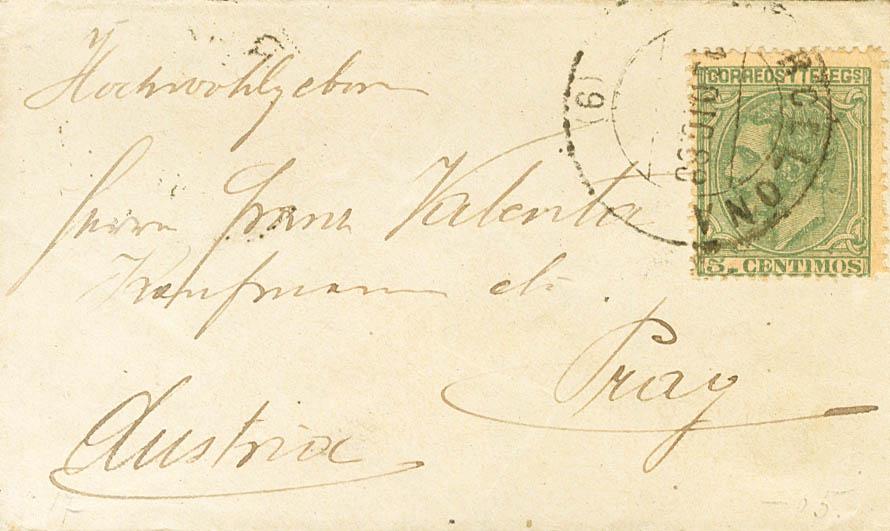 Hochwohlgeborn
Herrn Franz Valenta
Kaufmann etc
Prag
Austria
CORREOS Y TELEGS
5. CENTIMOS
(9)